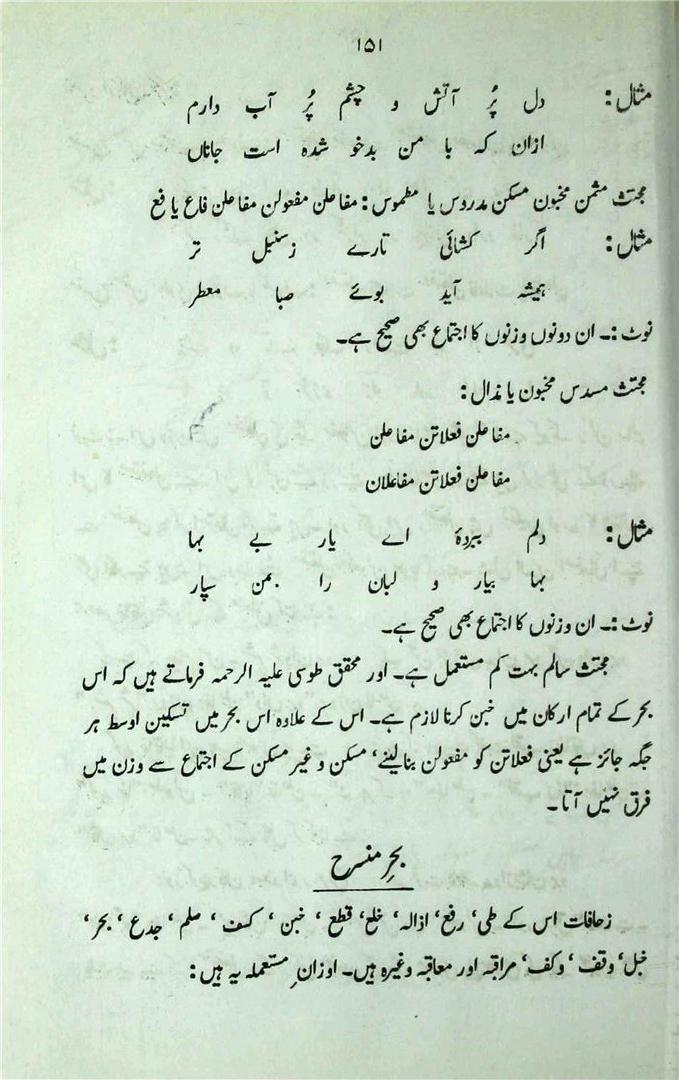 ۱۵۱
مثال: دل پُر آتش و چشم پُر آب دارم
ازان کہ با من بدخو شدہ است جاناں
مجتث مثمن مخبون مسکن مدروس یا مطموس: مفاعلن مفعولن مفاعلن فاع یا فع
مثال: اگر کشائی تارے زسنبل تر
ہمیشہ آید بوئے صبا معطر
نوٹ:۔ ان دونوں وزنوں کا اجتماع بھی صحیح ہے۔
مجتث مسدس مخبون یا مذال:
مفاعلن فعلاتن مفاعلن
مفاعلن فعلاتن مفاعلان
مثال: دلم ببردۂ اے یار بے بہا
بہا بیار و لبان را بمن سپار
نوٹ:۔ ان وزنوں کا اجتماع بھی صحیح ہے۔
مجتث سالم بہت کم مستعمل ہے۔ اور محقق طوسی علیہ الرحمہ فرماتے ہیں کہ اس
بحر کے تمام ارکان میں خبن کرنا لازم ہے۔ اس کے علاوہ اس بحر میں تسکین اوسط ہر
جگہ جائز ہے یعنی فعلاتن کو مفعولن بنا لینے، مسکن و غیر مسکن کے اجتماع سے وزن میں
فرق نہیں آتا۔
بحرِ منسرح
زحافات اس کے طی، رفع، ازالہ، خلع، قطع، خبن، کسف، صلم، جدع، بحر،
خبل، وقف، وکف، مراقبہ اور معاقبہ وغیرہ ہیں۔ اوزانِ مستعملہ یہ ہیں: